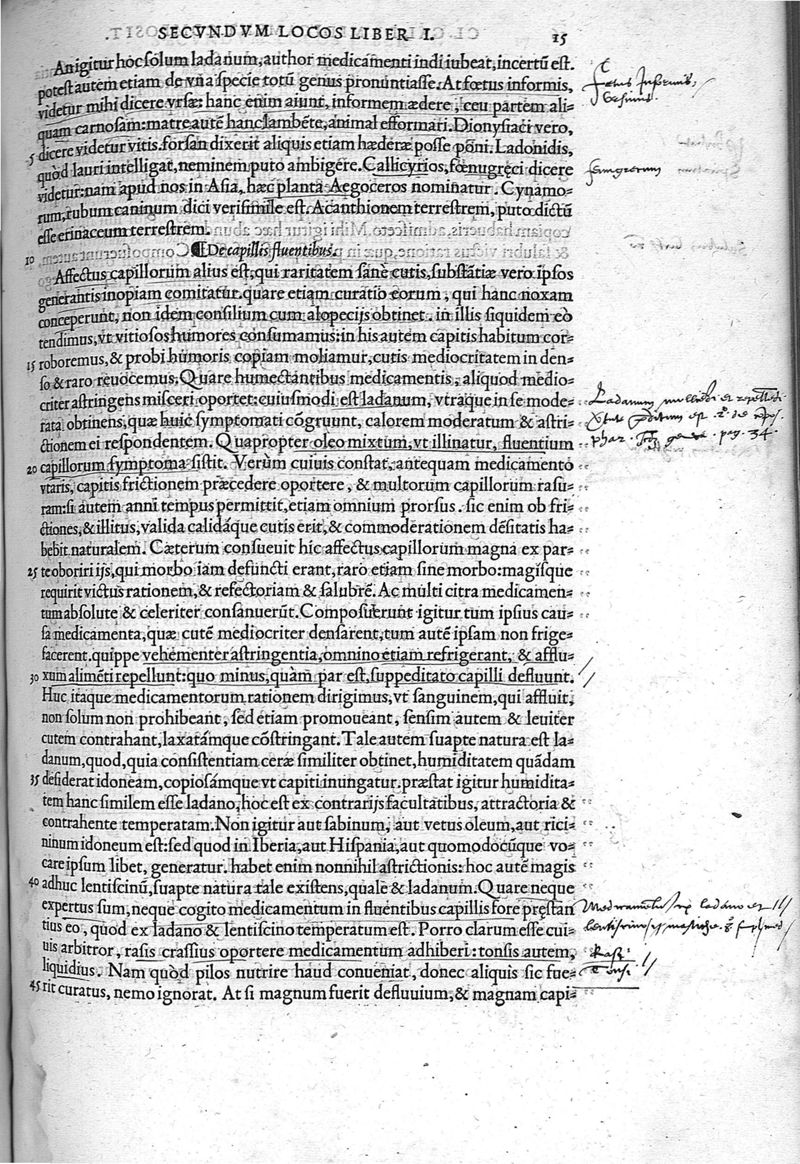 SECVNDVM LOCOS LIBER I. 15
An igitur hoc solum ladanum, author medicamenti indi iubeat, incertũ est.
potest autem etiam de vna specie totũ genus pronuntiasse. At fœtus informis,
videtur mihi dicere vrsæ: hanc enim aiunt, informem ædere, ceu partem ali-
quam carnosam: matre autẽ hanc lambẽte, animal efformati. Dionysiaci vero,
dicere videtur vitis. forsan dixerit aliquis etiam hæderæ posse põni. Ladonidis,
5 quòd lauri intelligat, neminem puto ambigere. Callicyrios, fœnugręci dicere
videtur: nam apud nos in Asia, hæc planta Aegoceros nominatur. Cynamo-
rum, rubum caninum dici verisimile est. Acanthionem terrestrem, puto dictũ
esse erinaceum terrestrem.
10 ¶ De capillis fluentibus.
Affectus capillorum alius est, qui raritatem sanè cutis, substãtiæ vero ipsos
generantis inopiam comitatur. quare etiam curatio eorum, qui hanc noxam
conceperunt, non idem consilium cum alopecijs obtinet. in illis siquidem eò
tendimus, vt vitiosos humores consumamus: in his autem capitis habitum cor-
15 roboremus, & probi humoris copiam moliamur, cutis mediocritatem in den-
so & raro reuocemus. Quare humectantibus medicamentis, aliquod medio-
criter astringens misceri oportet: cuiusmodi est ladanum, vtraque in se mode-
rata obtinens, quæ huic symptomati cõgruunt, calorem moderatum & astri-
ctionem ei respondentem. Quapropter oleo mixtum, vt illinatur, fluentium
20 capillorum symptoma sistit. Verùm cuiuis constat, antequam medicamento
vtaris, capitis frictionem præcedere oportere, & multorum capillorum rasu-
ram: si autem anni tempus permittit, etiam omnium prorsus. sic enim ob fri-
ctiones, & illitus, valida calidáque cutis erit, & commoderationem dẽsitatis ha-
bebit naturalem. Cæterum consueuit hic affectus capillorum magna ex par-
25 te oboriri ijs, qui morbo iam defuncti erant, raro etiam sine morbo: magisque
requirit victus rationem, & refectoriam & salubrẽ. Ac multi citra medicamen-
tum absolute & celeriter consanuerũt. Composuerunt igitur tum ipsius cau-
sa medicamenta, quæ cutẽ mediocriter densarent, tum autẽ ipsam non frige-
facerent. quippe vehementer astringentia, omnino etiam refrigerant, & afflu-
30 xum alimẽti repellunt: quo minus, quàm par est, suppeditato capilli defluunt.
Huc itaque medicamentorum rationem dirigimus, vt sanguinem, qui affluit,
non solum non prohibeant, sed etiam promoueant, sensim autem & leuiter
cutem contrahant, laxatámque cõstringant. Tale autem suapte natura est la-
danum, quod, quia consistentiam ceræ similiter obtinet, humiditatem quãdam
35 desiderat idoneam, copiosámque vt capiti inungatur. præstat igitur humidita-
tem hanc similem esse ladano, hoc est ex contrarijs facultatibus, attractoria &
contrahente temperatam. Non igitur aut sabinum, aut vetus oleum, aut rici-
ninum idoneum est: sed quod in Iberia, aut Hispania, aut quomodocũque vo-
care ipsum libet, generatur. habet enim nonnihil astrictionis: hoc autẽ magis
40 adhuc lentiscinũ, suapte natura tale existens, quale & ladanum. Quare neque
expertus sum, neque cogito medicamentum in fluentibus capillis fore pręstan
tius eo, quod ex ladano & lentiscino temperatum est. Porro clarum esse cui-
uis arbitror, rasis crassius oportere medicamentum adhiberi: tonsis autem,
liquidius. Nam quòd pilos nutrire haud conueniat, donec aliquis sic fue-
45 rit curatus, nemo ignorat. At si magnum fuerit defluuium, & magnam capi-
Fœtus informis,
Vrsinus.
fenugrecum
Ladanum
pag. 34.
ladano et
Rasis
Tonsi